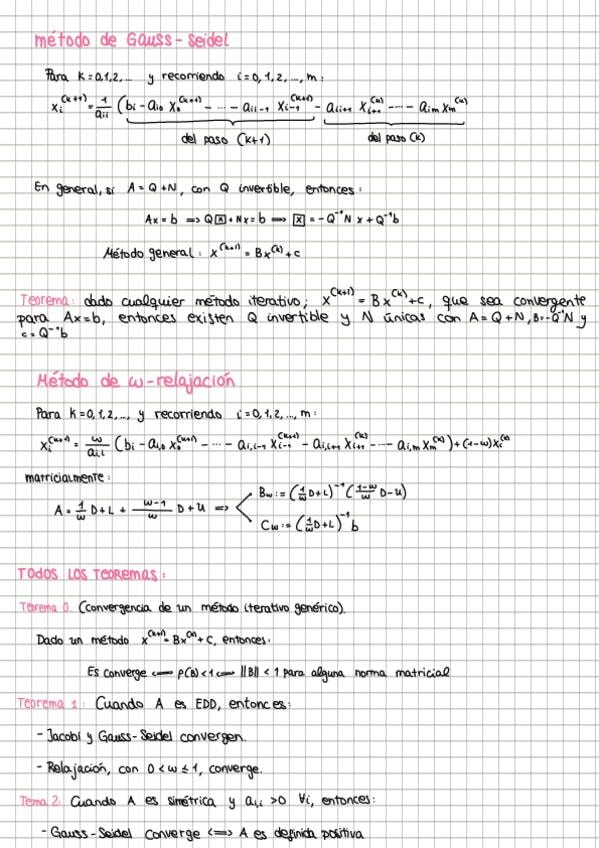 método de Gauss-Seidel
Para k=0,1,2,... y recorriendo i=0,1,2,...,m:
xᵢ⁽ᵏ⁺¹⁾ = 1/aᵢᵢ (bᵢ - aᵢ₀ x₀⁽ᵏ⁺¹⁾ - ... - aᵢᵢ₋₁ xᵢ₋₁⁽ᵏ⁺¹⁾ - aᵢᵢ₊₁ xᵢ₊₁⁽ᵏ⁾ - ... - aᵢₘ xₘ⁽ᵏ⁾)
del paso (k+1) del paso (k)
En general, si A = Q+N, con Q invertible, entonces:
Ax=b ⟹ Q[x]+Nx=b ⟹ [x] = -Q⁻¹N x + Q⁻¹b
Método general: x⁽ᵏ⁺¹⁾ = Bx⁽ᵏ⁾+c
Teorema: dado cualquier método iterativo; x⁽ᵏ⁺¹⁾ = Bx⁽ᵏ⁾+c, que sea convergente
para Ax=b, entonces existen Q invertible y N únicas con A=Q+N, B=-Q⁻¹N y
c=Q⁻¹b
Método de ω-relajación
Para k=0,1,2,..., y recorriendo i=0,1,2,...,m:
xᵢ⁽ᵏ⁺¹⁾ = ω/aᵢ,ᵢ (bᵢ - aᵢ,₀ x₀⁽ᵏ⁺¹⁾ - ... - aᵢ,ᵢ₋₁ xᵢ₋₁⁽ᵏ⁺¹⁾ - aᵢ,ᵢ₊₁ xᵢ₊₁⁽ᵏ⁾ - ... - aᵢ,ₘ xₘ⁽ᵏ⁾) + (1-ω)xᵢ⁽ᵏ⁾
matricialmente:
A = 1/ω D+L + (ω-1)/ω D+U ⟹
Bω := (1/ω D+L)⁻¹ ((1-ω)/ω D-U)
Cω := (1/ω D+L)⁻¹ b
TODOS LOS TEOREMAS:
Teorema 0. (convergencia de un método iterativo genérico).
Dado un método x⁽ᵏ⁺¹⁾ = Bx⁽ᵏ⁾ + C, entonces:
Es converge ⟺ ρ(B)<1 ⟺ ||B|| < 1 para alguna norma matricial
Teorema 1: Cuando A es EDD, entonces:
- Jacobi y Gauss-Seidel convergen.
- Relajación, con 0<ω≤1, converge.
Tema 2: Cuando A es simétrica y aᵢ,ᵢ >0 ∀i, entonces:
- Gauss-Seidel converge ⟺ A es definida positiva